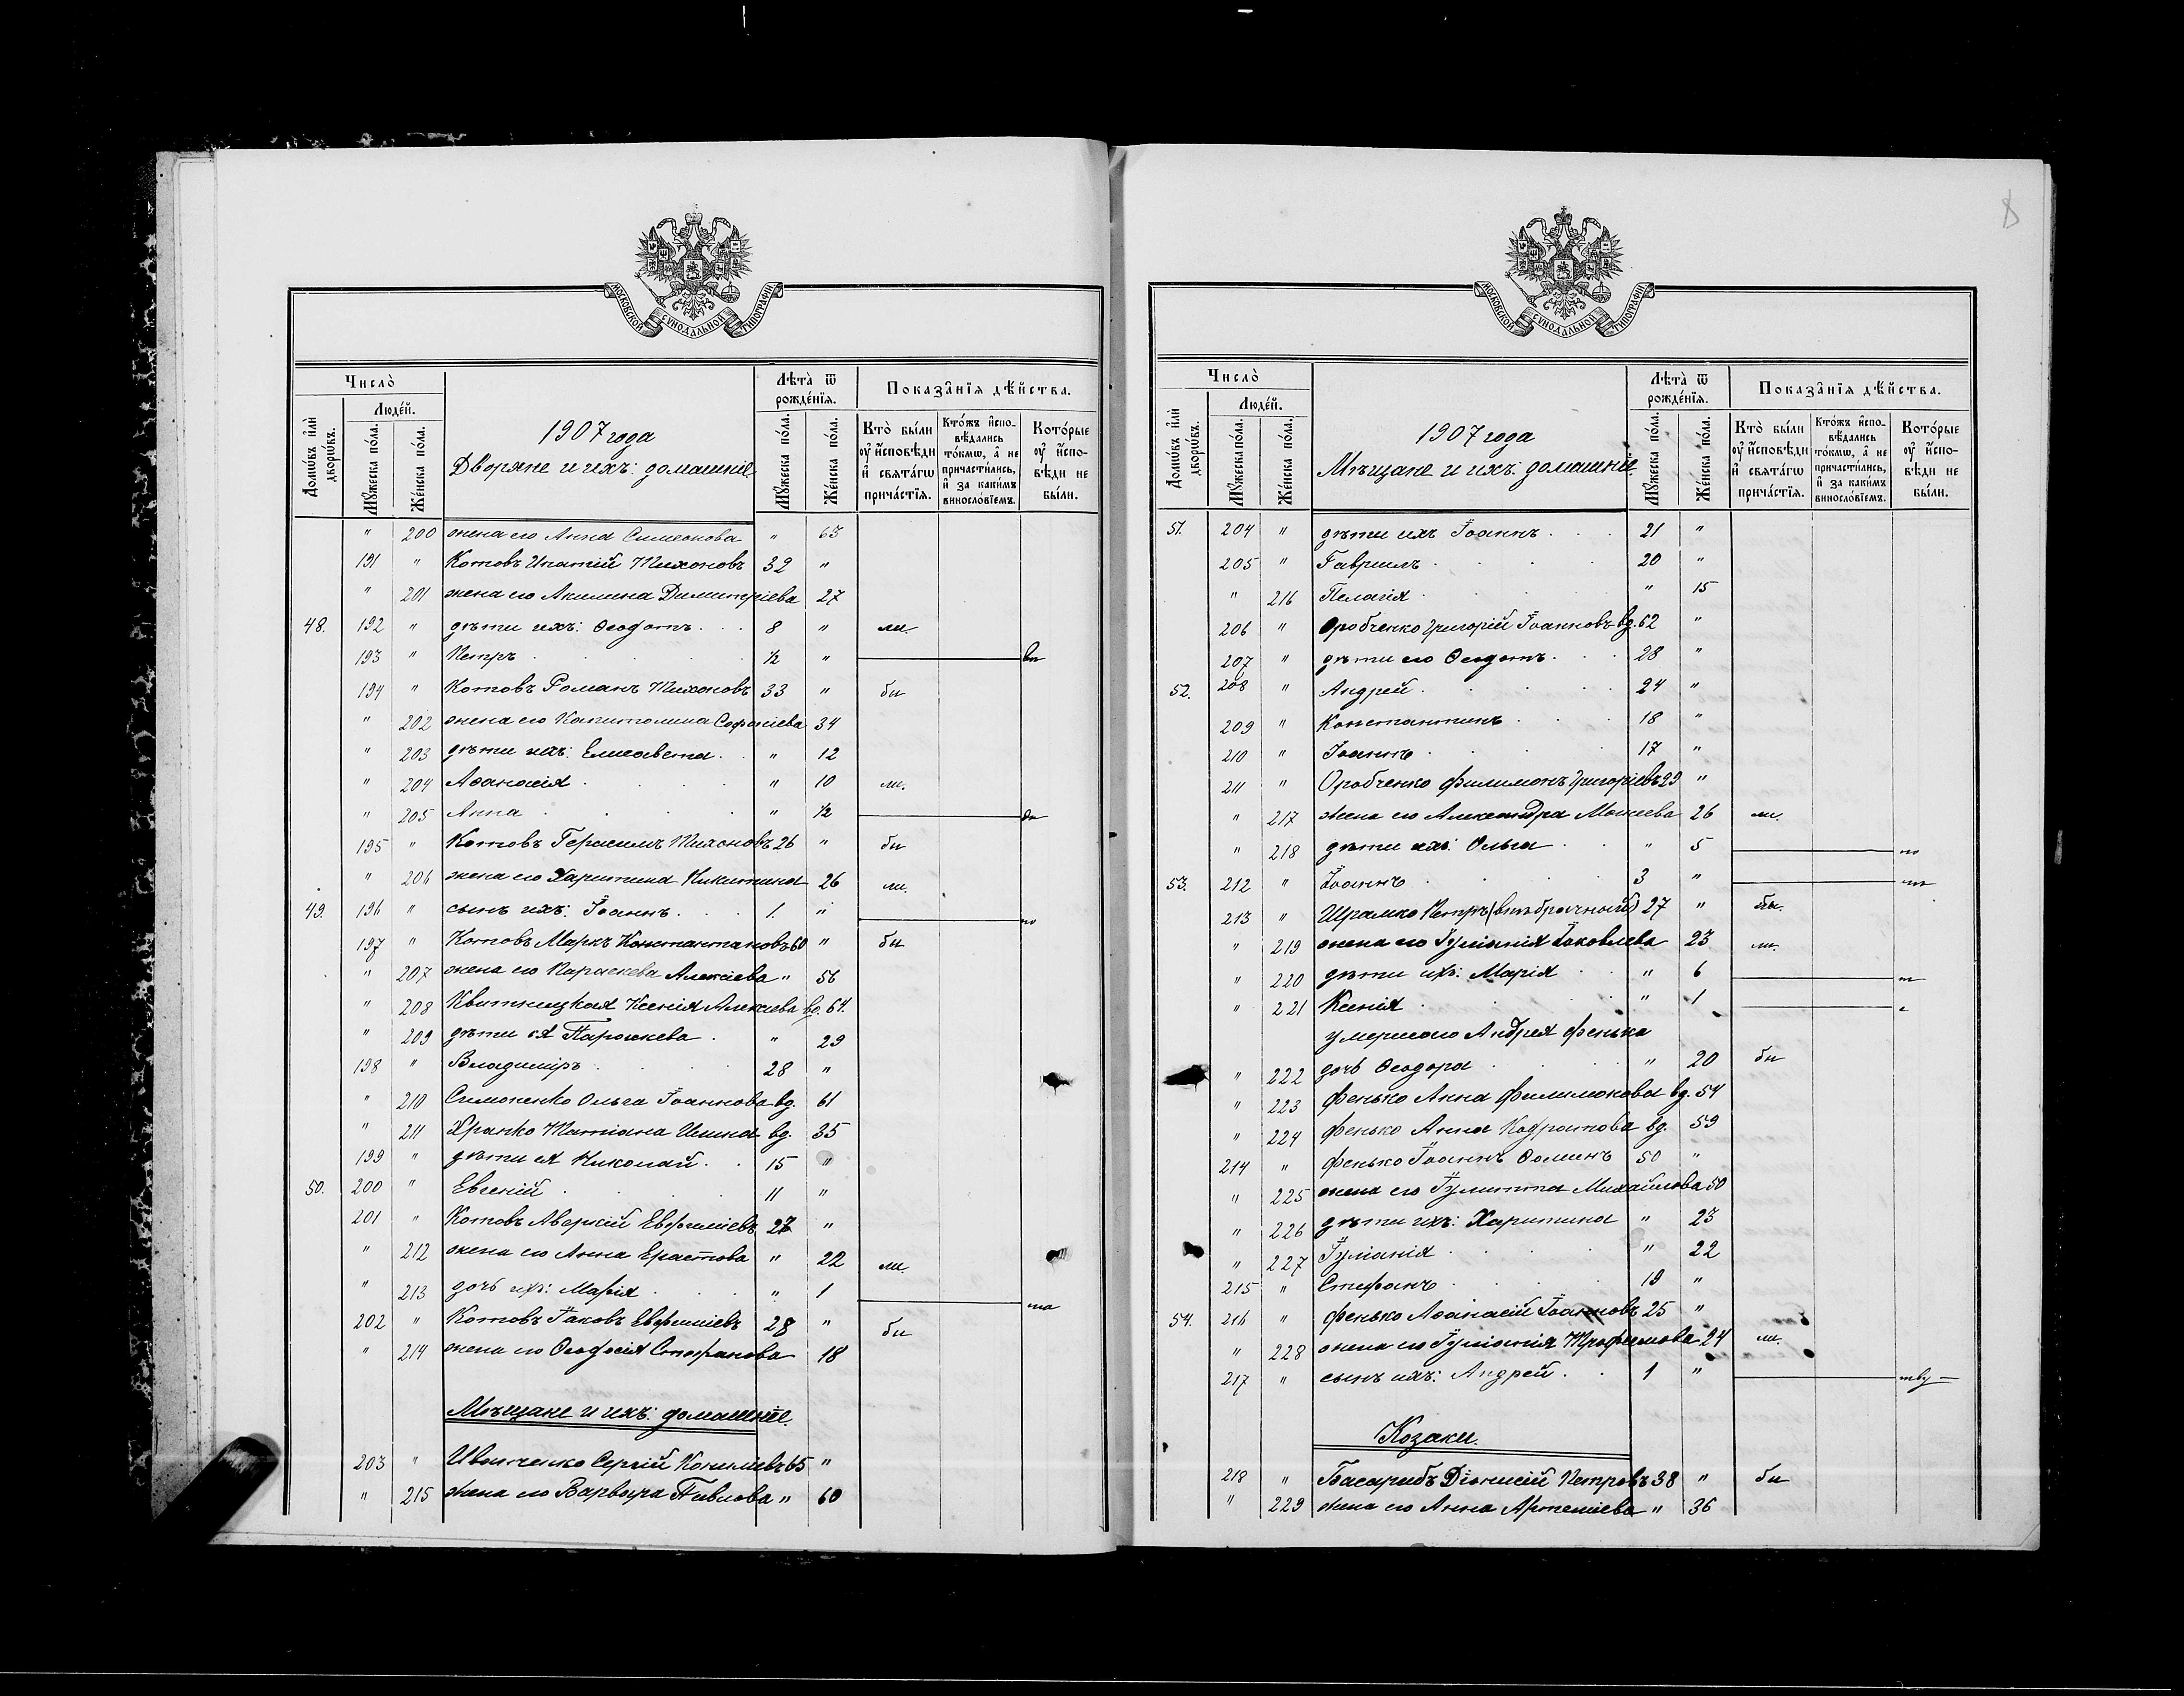 МОСКОВСКОЙ СѴНОДАЛЬНОЙ ТИПОГРАФІИ
Число̀
Домѡ́въ и҆лѝ дворѡ́въ.
Люде́й.
Мꙋ́жеска по́ла.
Же́нска по́ла.
1907 года
Дворяне и ихъ: домашніе
Лѣта̀ ѿ рожде́нїѧ.
Мꙋ́жеска по́ла.
Же́нска по́ла.
Показа̑нїѧ дѣ́йства.
Кто̀ бы́ли ᲂу҆ и҆сповѣди и҆ свѧта́гѡ прича́стїѧ.
Кто́жъ и҆спо­вѣдались то́кмѡ, а҆ не причастились, и҆ за каки́мъ винослові́емъ.
Кото́рые ᲂу҆ и҆спо­вѣди не бы́ли.
" 200 жена его Анна Симеонова " 63
191 " Котовъ Ипатій Тихоновъ 32 "
" 201 жена его Акилина Димитріева 27
48. 192 " дѣти ихъ: Ѳеодотъ 8 " ли.
193 " Петръ ½ " вп
194 " Котовъ Романъ Тихоновъ 33 " бы
" 202 жена его Капитолина 34
" 203 дѣти ихъ: Елисавета " 12
" 204 Аѳанасія " 10 ли.
" 205 Анна " ½
195 " Котовъ Герасимъ Тихоновъ 26 " бы
" 206 жена его Харитина Никитина 26 ли.
49. 196 " сынъ ихъ: Іоаннъ 1. " по
197 " Котовъ Маркъ Константиновъ 60 " бы
" 207 жена его Параскева Алексіева " 56
" 208 Квитницкая Ксенія Алексіева вд. 64.
" 209 дѣти ея Параскева " 29
198 " Владиміръ 28 "
" 210 Симоненко Ольга Іоаннова вд. 61
" 211 Храпко Татіана Ильина вд. 35
199 " дѣти ея Николай 15 "
50. 200 " Евгеній 11 "
201 " Котовъ Аверкій Евфиміевъ 27 "
" 212 жена его Анна Ерастова " 22 ли.
" 213 дочь ихъ: Марія " 1 та
202 " Котовъ Іаковъ Евфиміевъ 28 " бы
" 214 жена его Ѳеодосія Стефанова 18
Мѣщане и ихъ: домашніе.
203 " Иванченко Сергій 65 "
" 215 жена его Варвара Павлова " 60
МОСКОВСКОЙ СѴНОДАЛЬНОЙ ТИПОГРАФІИ
8
Число̀
Домѡ́въ и҆лѝ дворѡ́въ.
Люде́й.
Мꙋ́жеска по́ла.
Же́нска по́ла.
1907 года
Мѣщане и ихъ: домашніе.
Лѣта̀ ѿ рожде́нїѧ.
Мꙋ́жеска по́ла.
Же́нска по́ла.
Показа̑нїѧ дѣ́йства.
Кто̀ бы́ли ᲂу҆ и҆сповѣди и҆ свѧта́гѡ прича́стїѧ.
Кто́жъ и҆спо­вѣдались то́кмѡ, а҆ не причастились, и҆ за каки́мъ винослові́емъ.
Кото́рые ᲂу҆ и҆спо­вѣди не бы́ли.
51. 204 " дѣти ихъ Іоаннъ 21 "
205 " Гавріилъ 20 "
" 216 Пелагія " 15
206 " Оробченко Григорій Іоанновъ вд. 62 "
207 " дѣти его Ѳеодотъ 28 "
52. 208 " Андрей 24 "
209 " Константинъ 18 "
210 " Іоаннъ 17 "
211 " Оробченко Филимонъ Григоріевъ 29 "
" 217 жена его Александра Моисеева 26 ли.
" 218 дѣти ихъ: Ольга " 5 по
53. 212 " Іоаннъ 3 "
213 " Шрамко Петръ (внѣбрачный) 27 " бы.
" 219 жена его Іуліанія Іаковлева 23 ли.
" 220 дѣти ихъ: Марія " 6 т
" 221 Ксенія " 1
умершаго Андрея Фенька
" 222 дочь Ѳеодора " 20 бы
" 223 Фенько Анна Филимонова вд. 54
" 224 Фенько Анна Кодратова вд. 59
214 " Фенько Іоаннъ Ѳоминъ 50 "
" 225 жена его Іулитта Михайлова 50
" 226 дѣти ихъ: Харитина " 23
" 227 Іуліанія " 22
215 " Стефанъ 19 "
54. 216 " Фенько Аѳанасій Іоанновъ 25 "
" 228 жена его Іуліанія Трофимова 24 ли.
217 " сынъ ихъ: Андрей 1 " тву
Козаки.
218 " Басарабъ Діонисій Петровъ 38 " бы
" 229 жена его Анна Артеміева " 36